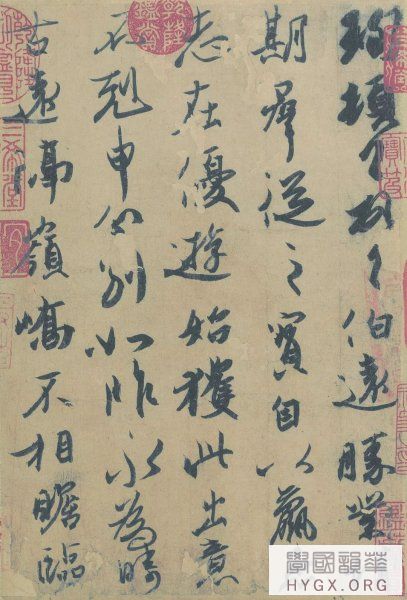 珣頓首頓首伯遠勝業
期羣從之寶自以羸
志在優遊始獲此出意
不剋申分別如昨永為疇
古遠隔嶺嶠不相瞻臨
華韻國學
HYGX.ORG